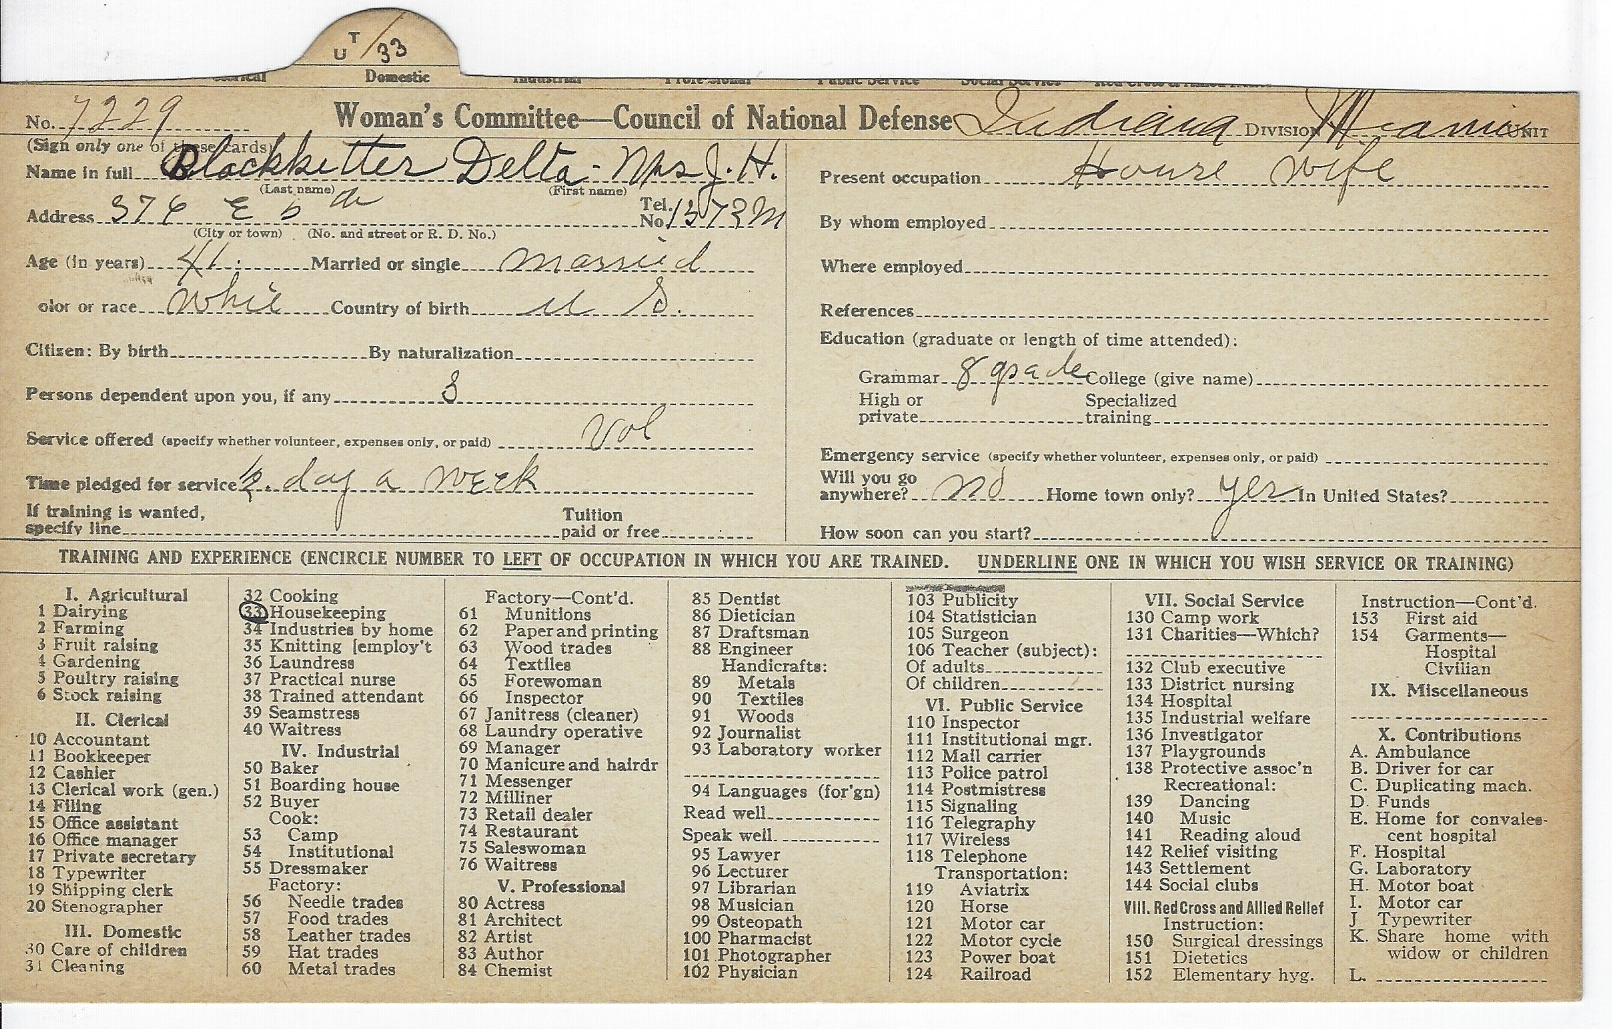 UT/33
Domestic
Public Service
No. 7229 Woman's Committee—Council of National Defense Indiana DIVISION Miami UNIT
(Sign only one of these cards)
Name in full Blackketter Delta - Mrs J. H.
(Last name) (First name)
Address 376 E 5th Tel. No. 1373M
(City or town) (No. and street or R. D. No.)
Age (in years) 41. Married or single married
olor or race Whie Country of birth U S.
Citizen: By birth By naturalization
Persons dependent upon you, if any 3
Service offered (specify whether volunteer, expenses only, or paid) Vol
Time pledged for service ½. day a week
If training is wanted, specify line Tuition paid or free
Present occupation House wife
By whom employed
Where employed
References
Education (graduate or length of time attended):
Grammar 8 grade College (give name)
High or private Specialized training
Emergency service (specify whether volunteer, expenses only, or paid)
Will you go anywhere? no Home town only? yes In United States?
How soon can you start?
TRAINING AND EXPERIENCE (ENCIRCLE NUMBER TO LEFT OF OCCUPATION IN WHICH YOU ARE TRAINED. UNDERLINE ONE IN WHICH YOU WISH SERVICE OR TRAINING)
I. Agricultural
1 Dairying
2 Farming
3 Fruit raising
4 Gardening
5 Poultry raising
6 Stock raising
II. Clerical
10 Accountant
11 Bookkeeper
12 Cashier
13 Clerical work (gen.)
14 Filing
15 Office assistant
16 Office manager
17 Private secretary
18 Typewriter
19 Shipping clerk
20 Stenographer
III. Domestic
30 Care of children
31 Cleaning
32 Cooking
33 Housekeeping
34 Industries by home
35 Knitting [employ't
36 Laundress
37 Practical nurse
38 Trained attendant
39 Seamstress
40 Waitress
IV. Industrial
50 Baker
51 Boarding house
52 Buyer
Cook:
53 Camp
54 Institutional
55 Dressmaker
Factory:
56 Needle trades
57 Food trades
58 Leather trades
59 Hat trades
60 Metal trades
Factory—Cont'd.
61 Munitions
62 Paper and printing
63 Wood trades
64 Textiles
65 Forewoman
66 Inspector
67 Janitress (cleaner)
68 Laundry operative
69 Manager
70 Manicure and hairdr
71 Messenger
72 Milliner
73 Retail dealer
74 Restaurant
75 Saleswoman
76 Waitress
V. Professional
80 Actress
81 Architect
82 Artist
83 Author
84 Chemist
85 Dentist
86 Dietician
87 Draftsman
88 Engineer
Handicrafts:
89 Metals
90 Textiles
91 Woods
92 Journalist
93 Laboratory worker
94 Languages (for'gn)
Read well
Speak well
95 Lawyer
96 Lecturer
97 Librarian
98 Musician
99 Osteopath
100 Pharmacist
101 Photographer
102 Physician
103 Publicity
104 Statistician
105 Surgeon
106 Teacher (subject):
Of adults
Of children
VI. Public Service
110 Inspector
111 Institutional mgr.
112 Mail carrier
113 Police patrol
114 Postmistress
115 Signaling
116 Telegraphy
117 Wireless
118 Telephone
Transportation:
119 Aviatrix
120 Horse
121 Motor car
122 Motor cycle
123 Power boat
124 Railroad
VII. Social Service
130 Camp work
131 Charities—Which?
132 Club executive
133 District nursing
134 Hospital
135 Industrial welfare
136 Investigator
137 Playgrounds
138 Protective assoc'n
Recreational:
139 Dancing
140 Music
141 Reading aloud
142 Relief visiting
143 Settlement
144 Social clubs
VIII. Red Cross and Allied Relief
Instruction:
150 Surgical dressings
151 Dietetics
152 Elementary hyg.
Instruction—Cont'd.
153 First aid
154 Garments—
Hospital
Civilian
IX. Miscellaneous
X. Contributions
A. Ambulance
B. Driver for car
C. Duplicating mach.
D. Funds
E. Home for convales-
cent hospital
F. Hospital
G. Laboratory
H. Motor boat
I. Motor car
J. Typewriter
K. Share home with
widow or children
L.